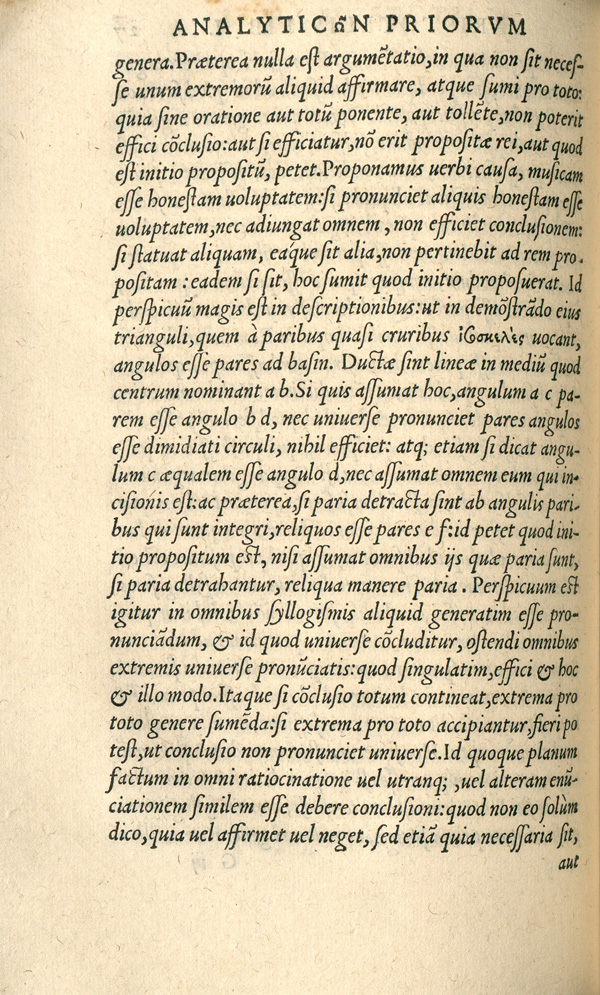 ANALYTICῶN PRIORVM
genera.Præterea nulla est argumẽtatio,in qua non sit necess-
se unum extremorũ aliquid affirmare, atque sumi pro toto:
quia sine oratione aut totũ ponente, aut tollẽte,non poterit
effici cõclusio:aut si efficiatur,nõ erit propositæ rei,aut quod
est initio propositũ, petet.Proponamus uerbi causa, musicam
esse honestam uoluptatem:si pronunciet aliquis honestam esse
uoluptatem,nec adiungat omnem , non efficiet conclusionem:
si statuat aliquam, eáque sit alia,non pertinebit ad rem pro-
positam : eadem si sit, hoc sumit quod initio proposuerat. Id
perspicuũ magis est in descriptionibus:ut in demõstrãdo eius
trianguli,quem à paribus quasi cruribus ἰσοσκελὲς uocant,
angulos esse pares ad basin. Ductæ sint lineæ in mediũ quod
centrum nominant a b.Si quis assumat hoc,angulum a c pa-
rem esse angulo b d, nec uniuerse pronunciet pares angulos
esse dimidiati circuli, nihil efficiet: atq; etiam si dicat angu-
lum c æqualem esse angulo d,nec assumat omnem eum qui in-
cisionis est:ac præterea,si paria detracta sint ab angulis pari-
bus qui sunt integri,reliquos esse pares e f:id petet quod ini-
tio propositum est, nisi assumat omnibus ijs quæ paria sunt,
si paria detrahantur, reliqua manere paria . Perspicuum est
igitur in omnibus syllogismis aliquid generatim esse pro-
nunciãdum, & id quod uniuerse cõcluditur, ostendi omnibus
extremis uniuerse pronũciatis:quod singulatim,effici & hoc
& illo modo.Itaque si cõclusio totum contineat,extrema pro
toto genere sumẽda:si extrema pro toto accipiantur,fieri po
test,ut conclusio non pronunciet uniuerse.Id quoque planum
factum in omni ratiocinatione uel utranq; ,uel alteram enũ-
ciationem similem esse debere conclusioni:quod non eo solùm
dico,quia uel affirmet uel neget, sed etiã quia necessaria sit,
aut